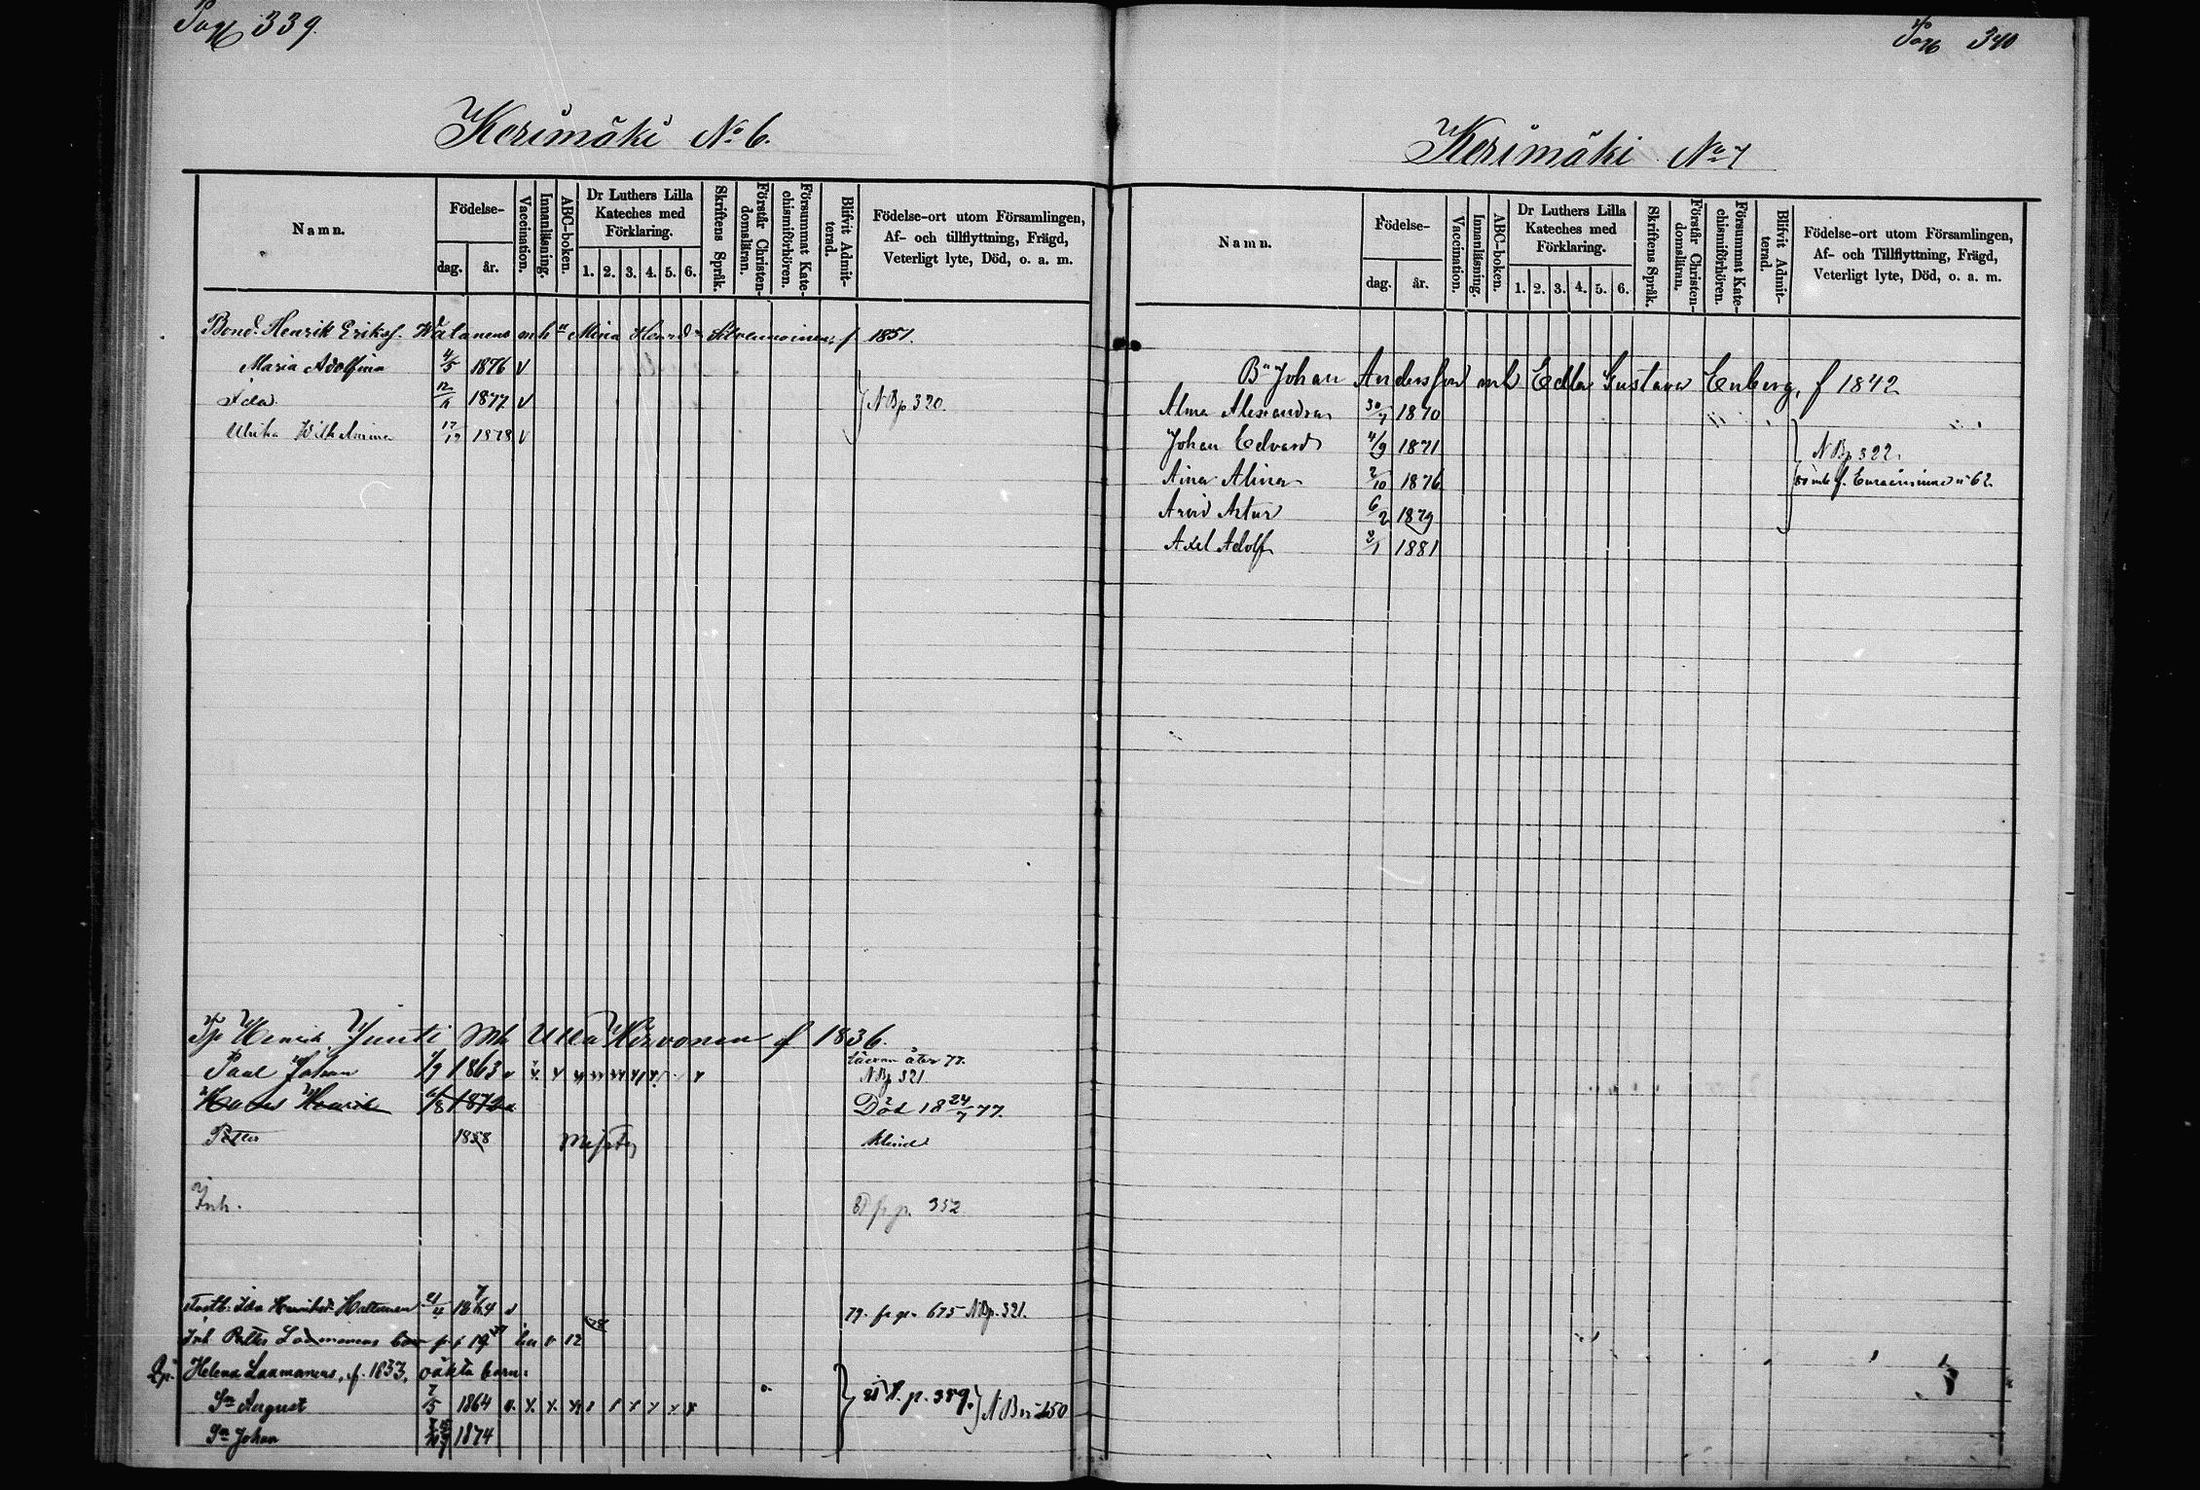 Pag 339.
Kerimäki No 6.
Namn.
Födelse-
dag.
år.
Vaccination.
Innanläsning.
ABC-boken.
Dr Luthers Lilla Kateches med Förklaring.
1. 2. 3. 4. 5. 6.
Skriftens Språk.
Förstår Christendomsläran.
Försummat Katechismiförhören.
Blifvit Admitterad.
Födelse-ort utom Församlingen,
Af- och tillflyttning, Frägd,
Veterligt lyte, Död, o. a. m.
Bond. Henrik Eriksf. mh Mina f 1851.
Maria Adolfina 4/5 1876 v
Ida 1877 v N Bp 320.
Ulrika Wilhelmina 17/12 1878 v
Henrik Juuti mh Ulla Hirvonen f 1836.
Paul Johan 1863 åter 77.
N Bp 321
Henrik 1872 Död 18 24/7 77.
Petter 1858 blind
Inh. 352
Ida Henriksd. Haltunen 1864 v 79. fr p. 675 N Bp. 321.
Inh Petter Laamanens
Helena Laamanens, f. 1833, oäkta barn:
Sn August 7/5 1864 p. 389. N B 150
Sn Johan 1874
Pag 340
Kerimäki No 7
Namn.
Födelse-
dag.
år.
Vaccination.
Innanläsning.
ABC-boken.
Dr Luthers Lilla Kateches med Förklaring.
1. 2. 3. 4. 5. 6.
Skriftens Språk.
Förstår Christendomsläran.
Försummat Katechismiförhören.
Blifvit Admitterad.
Födelse-ort utom Församlingen,
Af- och Tillflyttning, Frägd,
Veterligt lyte, Död, o. a. m.
Bn Johan Andersson mh Edla Gustava Enberg, f 1842
Alma Alexandra 30/7 1870
Johan Edvard 4/9 1871 N Bp 322.
Aina Alina 2/10 1876 62
Arvid Artur 6/2 1879
Axel Adolf 2/1 1881